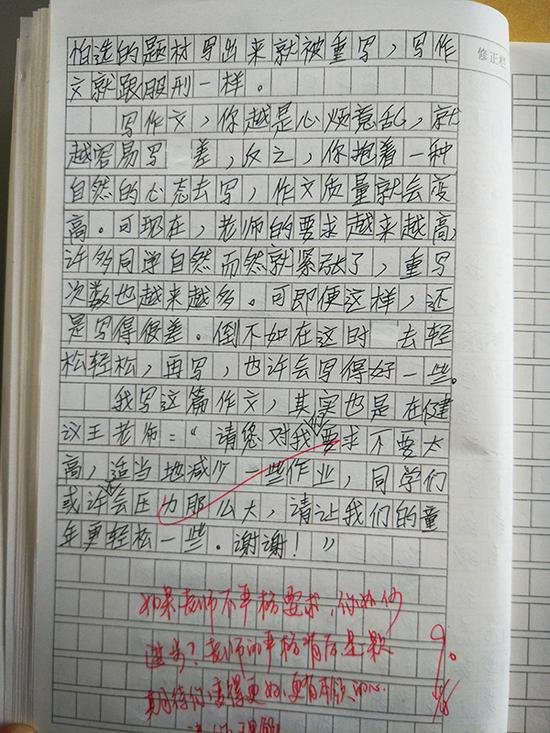 怕选的题材写出来就被重写，写作
文就跟服刑一样。
写作文，你越是心烦意乱，就
越容易写 差，反之，你抱着一种
自然的心态去写，作文质量就会变
高。可现在，老师的要求越来越高，
许多同学自然而然就紧张了，重写
次数也越来越多。可即便这样，还
是写得很差。倒不如在这时 去轻
松轻松，再写，也许会写得好一些。
我写这篇作文，其实也是在建
议王老师：“请您对我们要求不要太
高，适当地减少一些作业，同学们
或许会压力那么大，请让我们的童
年更轻松一些。谢谢！”
如果老师不严格要求，你如何
进步？老师的严格背后是一颗
期待你变得更好，更有本领的心。
请你理解
9.
修正栏